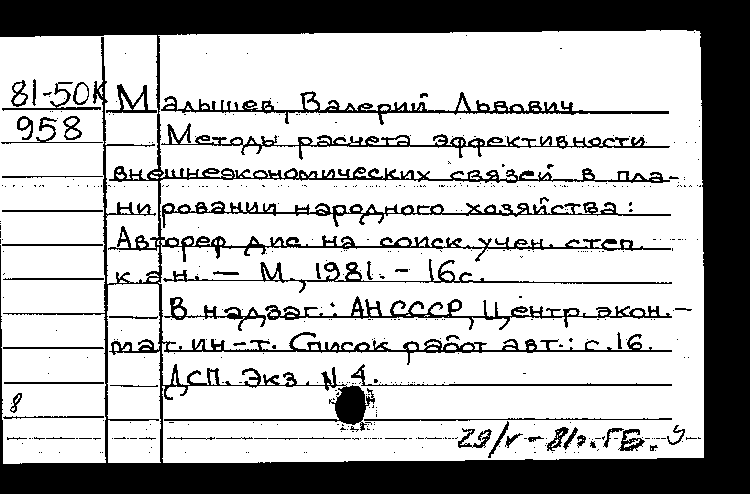 81-50К Малышев, Валерий Львович
958 Методы расчета эффективности
внешнеэкономических связей в пла-
нировании народного хозяйства:
Автореф. дис. на соиск. учен. степ.
к.э.н. — М., 1981. - 16с.
В надзаг.: АН СССР, Центр. экон.-
мат. ин-т. Список работ авт.: с.16.
ДСП. Экз. N 4.
8
29/V - 81г. ГБ.